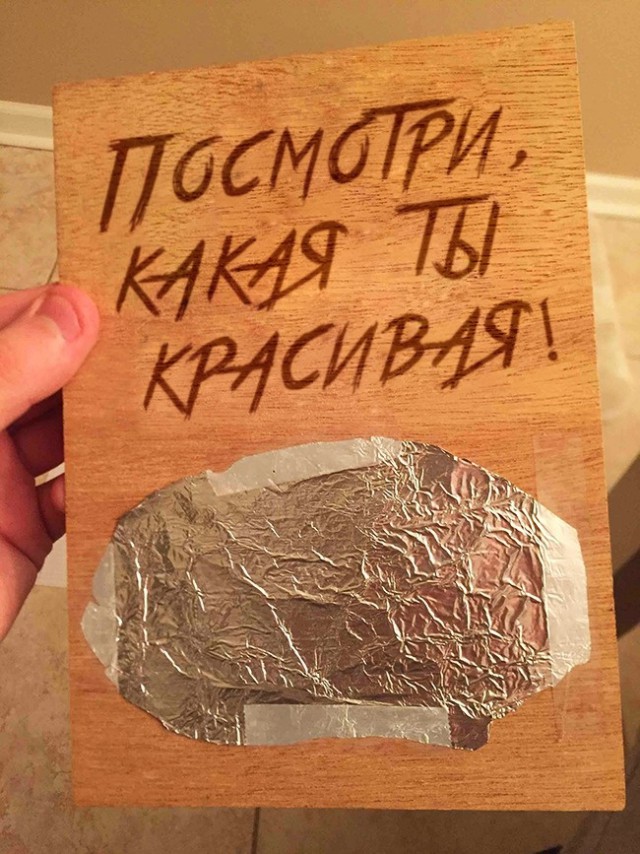 Посмотри,
какая ты
красивая!